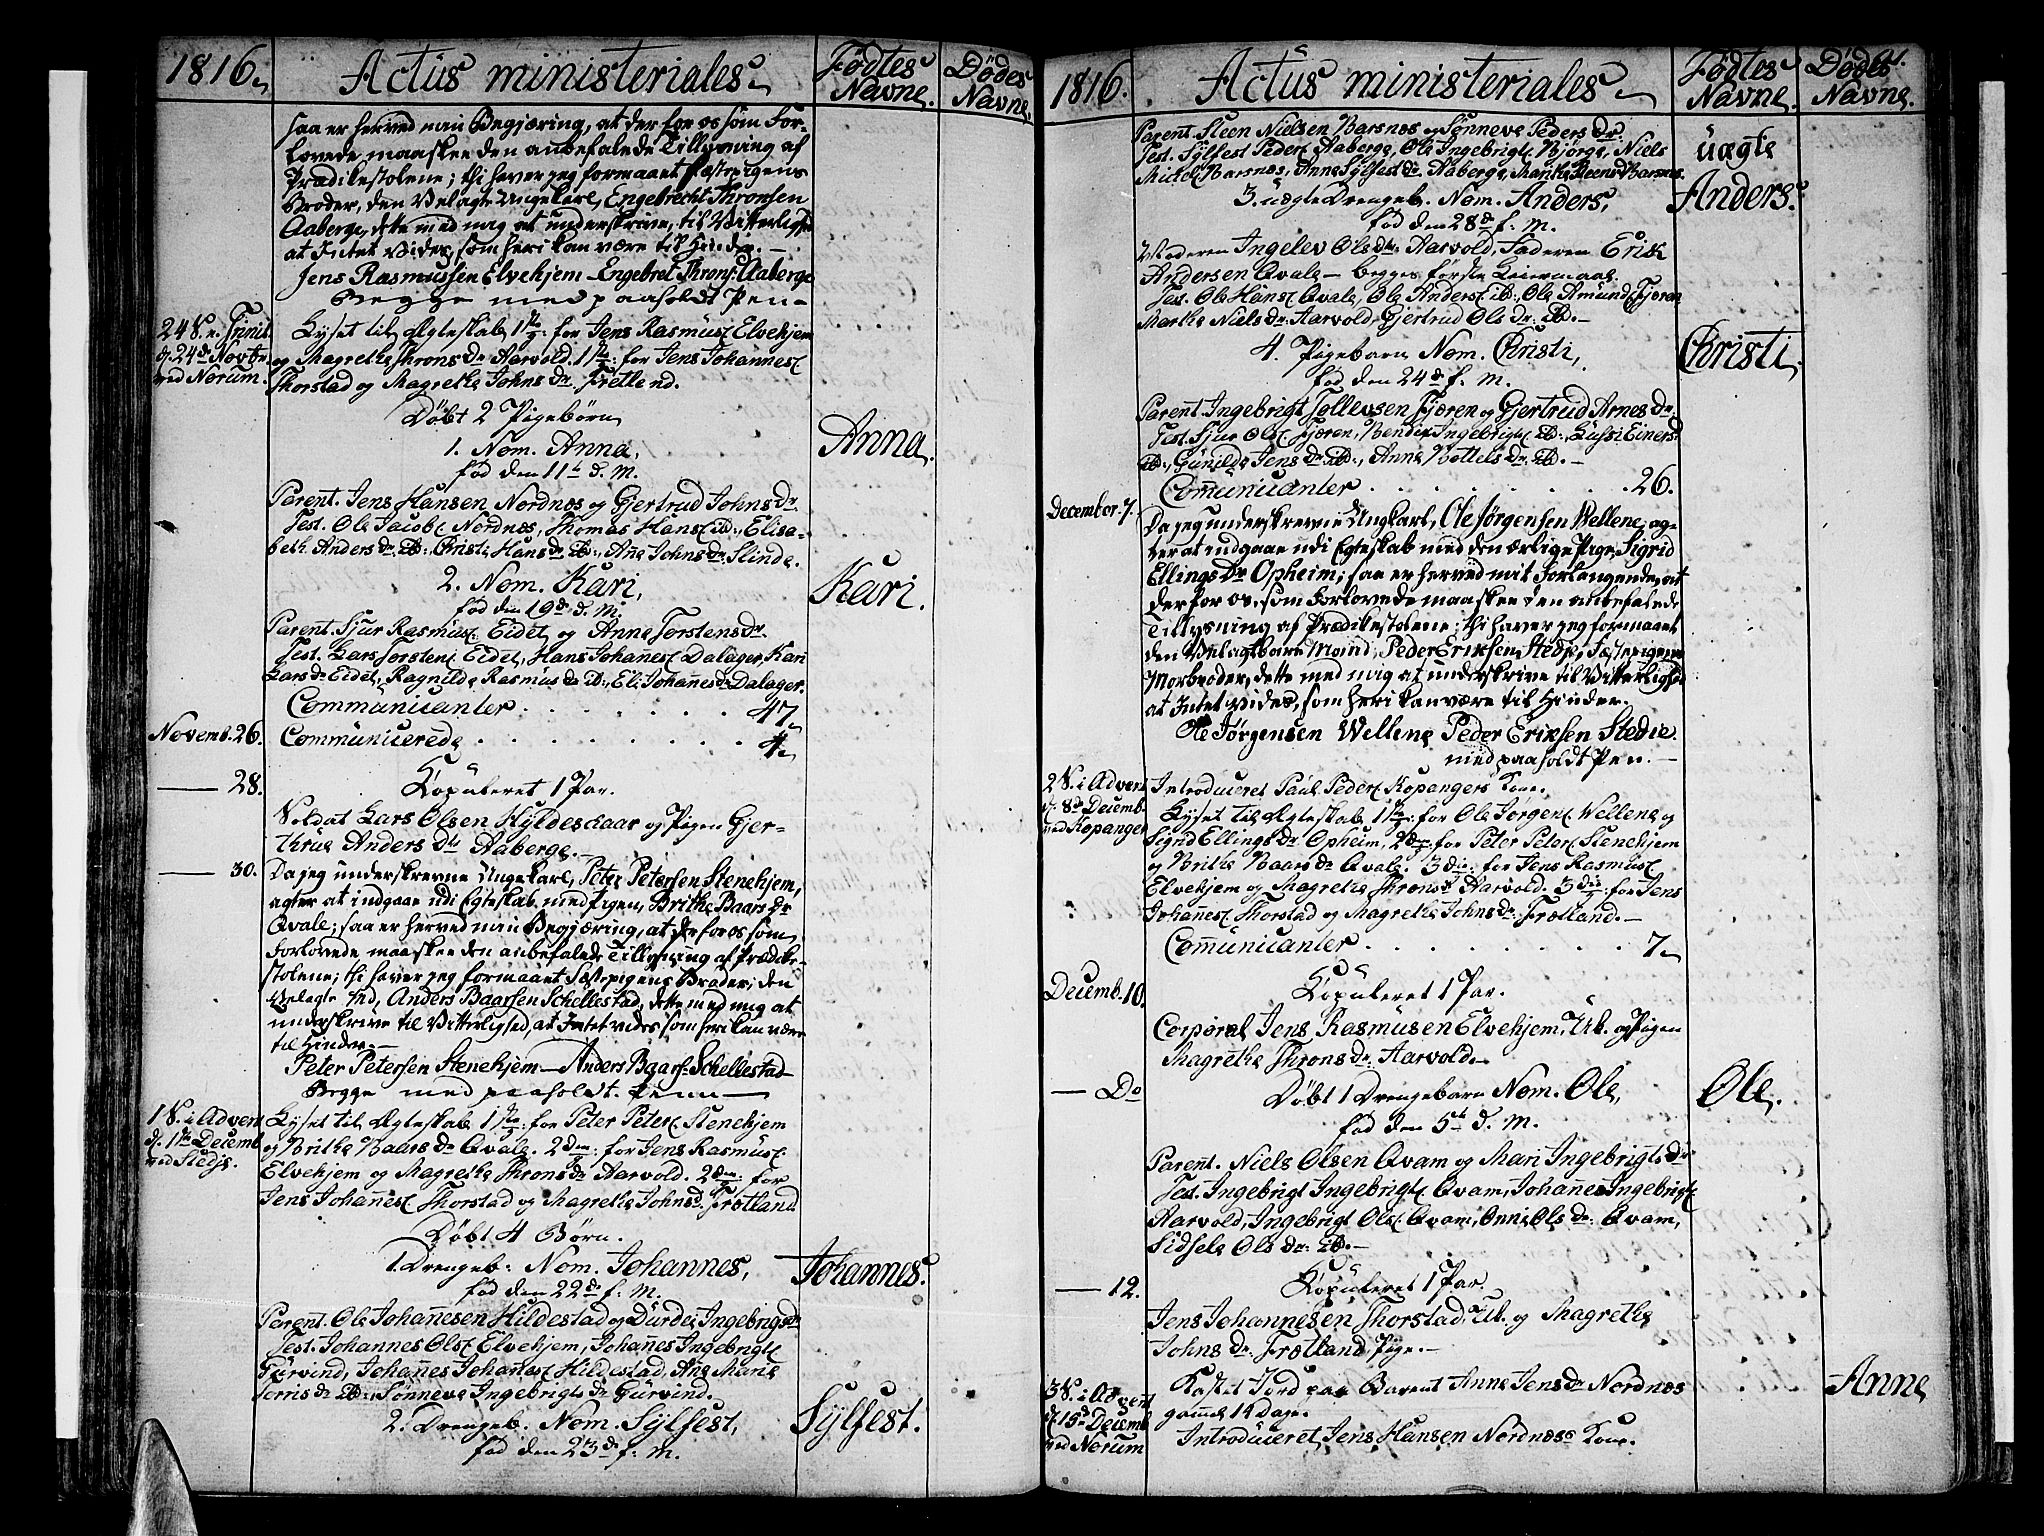 1816.
Actus ministeriales.
Fødtes Navne.
Dødes Navne.
saa er herved min Begjæring, at der for os som For-
lovede maa skee den anbefalede Tillysning af
Prædikestolene; thi haver jeg formaaet Fæstepigens
Broder, den Velagte Ungekarl, Engebrecht Thronsen
Aaberge, dette med mig at underskrive, til Vitterlighed
at Intet vides, som heri kan være til Hinder. —
Jens Rasmussen Elvehjem — Engebret Throns: Aaberge
Begge med paaholdt Pen —
24 S. e. Trinit.
d. 24de Novbr.
ved Norum.
Lyset til Ægteskab 1ste: for Jens Rasmus: Elvehjem
og Magrethe Throns Dr. Aarvold. 1ste: for Jens Johannes:
Thorstad og Magrethe Johns Dr. Frætland.
Døbt 2 Pigebørn
1. Nom. Anna,
Anna.
fød den 11te d. M.
Parent. Jens Hansen Nordnæs og Gjertrud Johns Dr.
Test. Ole Jacobs: Nordnæs, Thomas Hans: ib:, Elisa-
beth Anders Dr. ib:, Christi Hans Dr. ib:, Ane Johns Dr. Slinde.
2. Nom. Kari,
Kari.
fød den 19de d. M.
Parent. Sjur Rasmus: Eidet og Anne Torstens Dr.
Test. Lars Torstens: Eidet, Hans Johannes: Dalager, Kari
Lars Dr. Eidet, Ragnilde Rasmus Dr. ib:, Eli Johannes Dr. Dalager.
Communicanter . . . . . . . 47
Novemb. 26.
Communicerede . . . . . . . 4
— 28.
Copuleret 1 Par.
Soldat Lars Olsen Hyldesdaar og Pigen Gjer-
thrue Anders Dtr Aaberge. —
— 30.
Da jeg underskrevne Ungekarl, Peter Petersen Stenehjem,
agter at indgaae udi Egteskab med Pigen, Brithe Baars Dr
Qvale; saa er herved min Begjæring, at der for os som
Forlovede maa skee den anbefalede Tillysning af Prædike-
stolene; thi haver jeg formaaet Fæstepigens Broder, den
Velagte Anders Baarsen Schellestad, dette med mig at
underskrive til Vitterlighed, at Intet vides som heri kan være
til Hinder. —
Peter Petersen Stenehjem — Anders Baars: Schellestad —
Begge med paaholdt Penn —
1 S. i Advent
d. 1ste Decemb.
ved Stedje.
Lyset til Ægteskab 1ste: for Peter Peters: Stenehjem
og Brithe Baars Dr Qvale. 2den: for Jens Rasmus:
Elvehjem og Magrethe Throns Dr. Aarvold. 2den: for
Jens Johannes: Thorstad og Magrethe Johns Dr. Frætland
Døbt 4 Børn.
1. Drengeb: Nom. Johannes,
Johannes.
fød den 22de f. M.
Parent. Ole Johannesen Hildestad og Durdei Ingebrigs Dr
Test. Johannes Ols: Elvehjem, Johannes Ingebrigt:
Gurvind, Johannes Johannes: Hildestad, Ane Marie
Torris Dr ib:, Sønneve Ingebrigts Dr Gurvind.
2. Drengeb: Nom. Sylfest,
Sylfest.
fød den 23de f. M.
1816.
Actus ministeriales.
Fødtes Navne.
Dødes Navne.
Parent. Steen Nielsen Barsnæs og Sønneve Peders Dr.
Test. Sylfest Peders: Aaberge, Ole Ingebrigt: Bjørge, Niels
Michels: Barsnæs, Anne Sylfest Dr. Aaberge, Marthe Steens Dr Barsnæs
3. uægte Drengeb. Nom. Anders,
uægte
Anders.
fød den 28de f. M.
Moderen Ingelev Ols Dtr: Aarvold, Faderen Erik
Andersen Qvale — begges første Leiermaal.
Test. Ole Hans: Qvale, Ole Anders: ib:, Ole Amund: Fjæren
Marthe Niels Dr. Aarvold, Gjertrud Ols Dr. ib. —
4. Pigebarn Nom. Christi,
Christi.
fød den 24de f. M.
Parent. Ingebrigt Tollevsen Fjæren og Gjertrud Arnes Dr.
Test. Sjur Ols: Fjæren, Bendix Ingebrigt: ib:, Lussi Einers Dr
ib:, Gunilde Jens Dr. ib:, Anne Bottels Dr. ib. —
Communicanter . . . . . . . 26.
December 7.
Da jeg underskrevne Ungkarl, Ole Jørgensen Wellene, ag-
ter at indgaae udi Egteskab med den ærlige Pige, Sigrid
Ellings Dr Opheim; saa er herved mit Forlangende, at
der for os, som Forlovede maa skee den anbefalede
Tillysning af Prædikestolene; thi haver jeg formaaet
den Velagtbare Mand, Peder Eriksen Stedje, Fæstepigens
Morbroder, dette med mig at underskrive til Vitterlighed
at Intet vides, som heri kan være til Hinder.
Ole Jørgensen Wellene Peder Eriksen Stedje.
med paaholdt Pen. —
2 S. i Advent
d. 8de Decemb.
ved Kopanger
Introduceret Paul Peders: Kopangers Kone.
Lyset til Ægteskab 1ste: for Ole Jørgens: Wellene og
Sigrid Ellings Dr Opheim, 2den: for Peter Peters: Stenehjem
og Brithe Baars Dr Qvale. 3die: for Jens Rasmus:
Elvehjem og Magrethe Throns Dr Aarvold. 3die: for Jens
Johannes: Thorstad og Magrethe Johns Dr: Frætland. —
Communicanter . . . . . . . 7
Decemb. 10.
Copuleret 1 Par.
Corporal Jens Rasmusen Elvehjem, Uk. og Pigen
Magrethe Throns Dr. Aarvold. —
— Do
Døbt 1 Drengebarn Nom. Ole,
Ole.
fød den 5te d. M.
Parent. Niels Olsen Qvam og Mari Ingebrigts Dr
Test. Ingebrigt Ingebrigt: Qvam, Johannes Ingebrigt:
Aarvold, Ingebrigt Ols: Qvam, Anne Ols Dr: Qvam,
Sidsele Ols Dr: ib. —
— 12.
Copuleret 1 Par.
Jens Johannesen Thorstad, Uk. og Magrethe
Johns Dr. Frætland Pige. —
3 S. i Advent
d. 15de Decemb.
ved Norum
Kastet Jord paa Barnet Anne Jens Dr Nordnæs
Anne
gammel 14 Dage.
Introduceret Jens Hansen Nordnæs Kone.